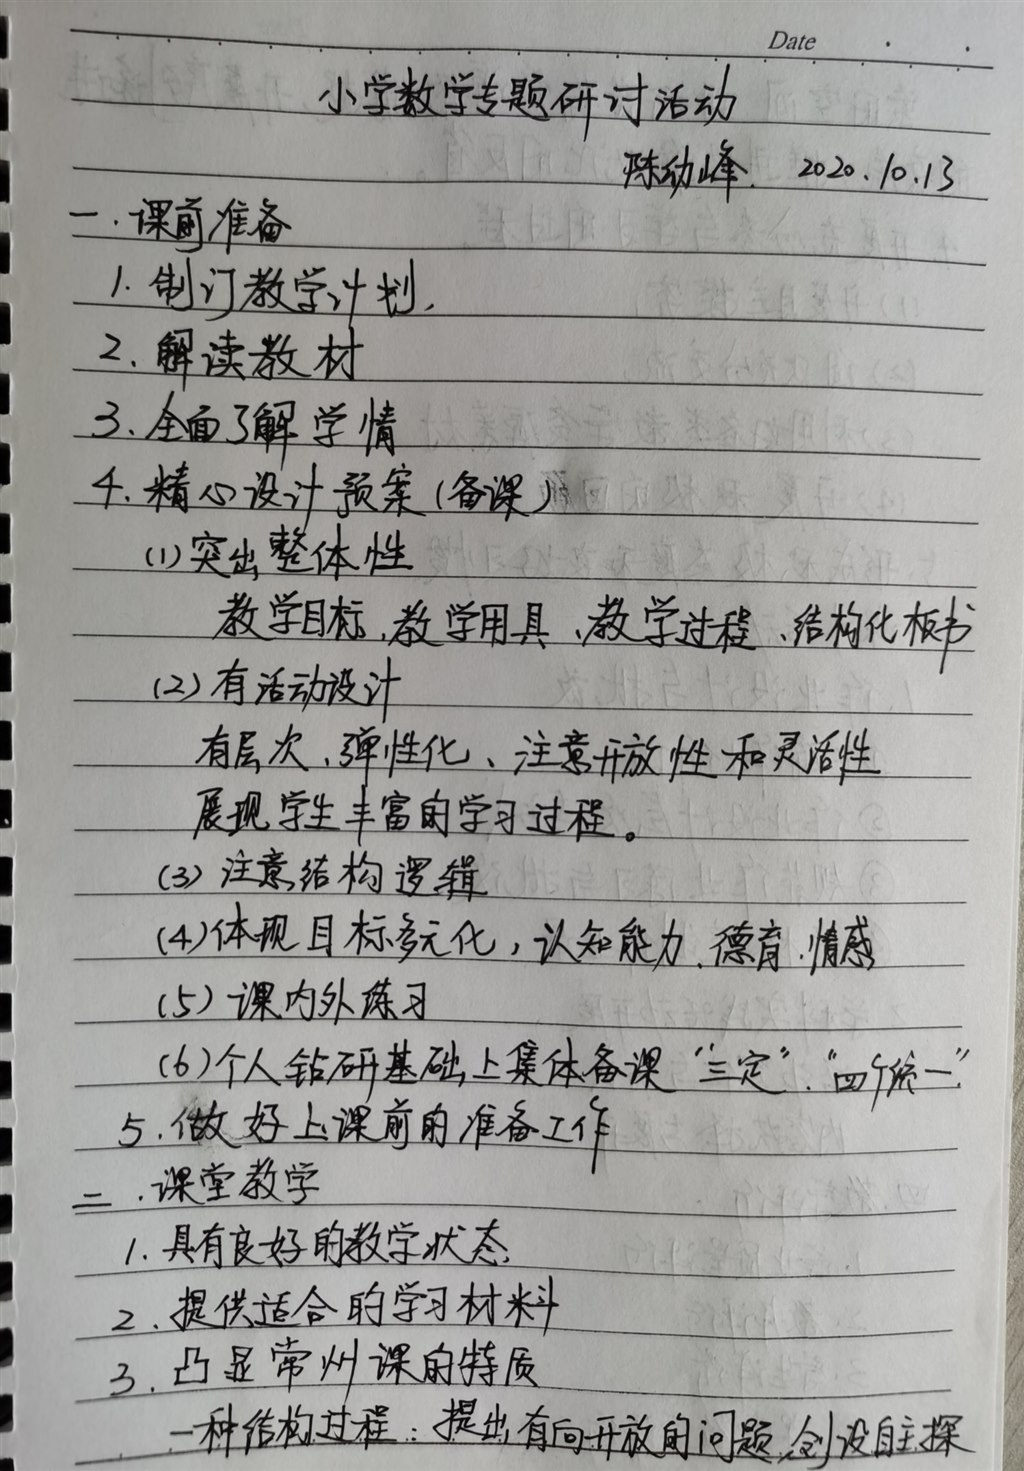 Date
小学数学专题研讨活动
陈幼峰. 2020.10.13
一.课前准备
1.制订教学计划.
2.解读教材
3.全面了解学情
4.精心设计预案(备课)
(1)突出整体性
教学目标、教学用具、教学过程、结构化板书
(2)有活动设计
有层次、弹性化、注意开放性和灵活性
展现学生丰富的学习过程。
(3)注意结构逻辑
(4)体现目标多元化,认知能力、德育、情感
(5)课内外练习
(6)个人钻研基础上集体备课"三定"."四个统一"
5.做好上课前的准备工作
二.课堂教学
1.具有良好的教学状态.
2.提供适合的学习材料
3.凸显常州课的特质
一种结构过程:提出有向开放的问题,创设自主探